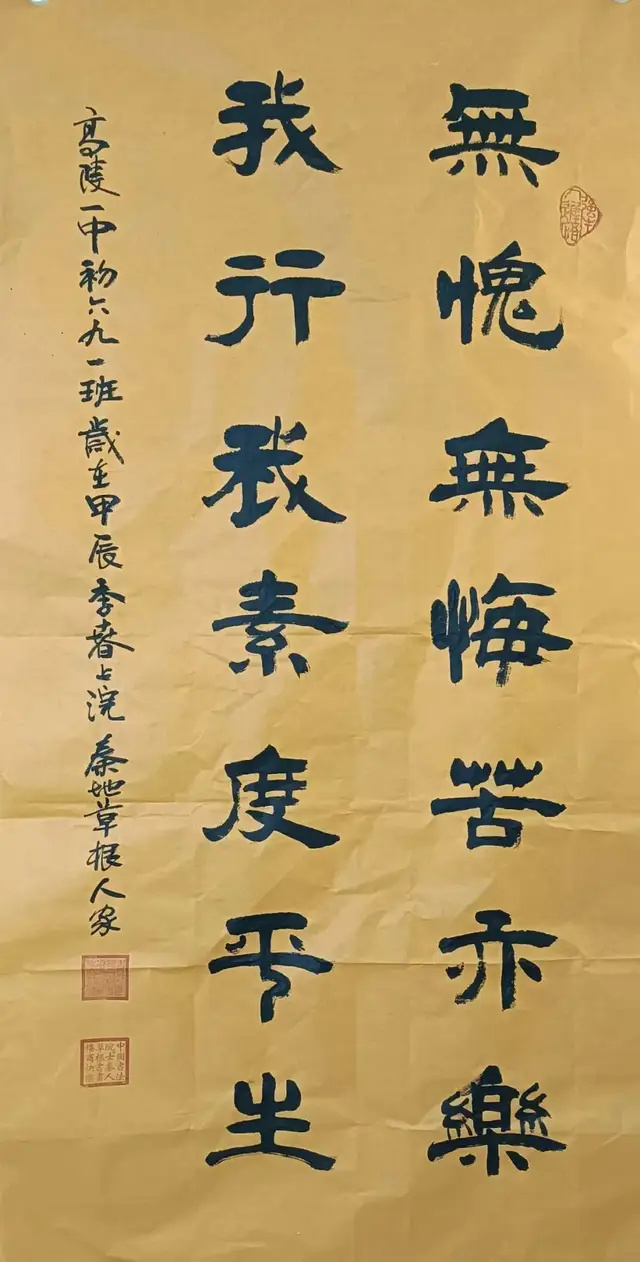 無愧無悔苦亦樂
我行我素度平生
高陵一中初六九一班歲在甲辰季春上浣秦地草根人家